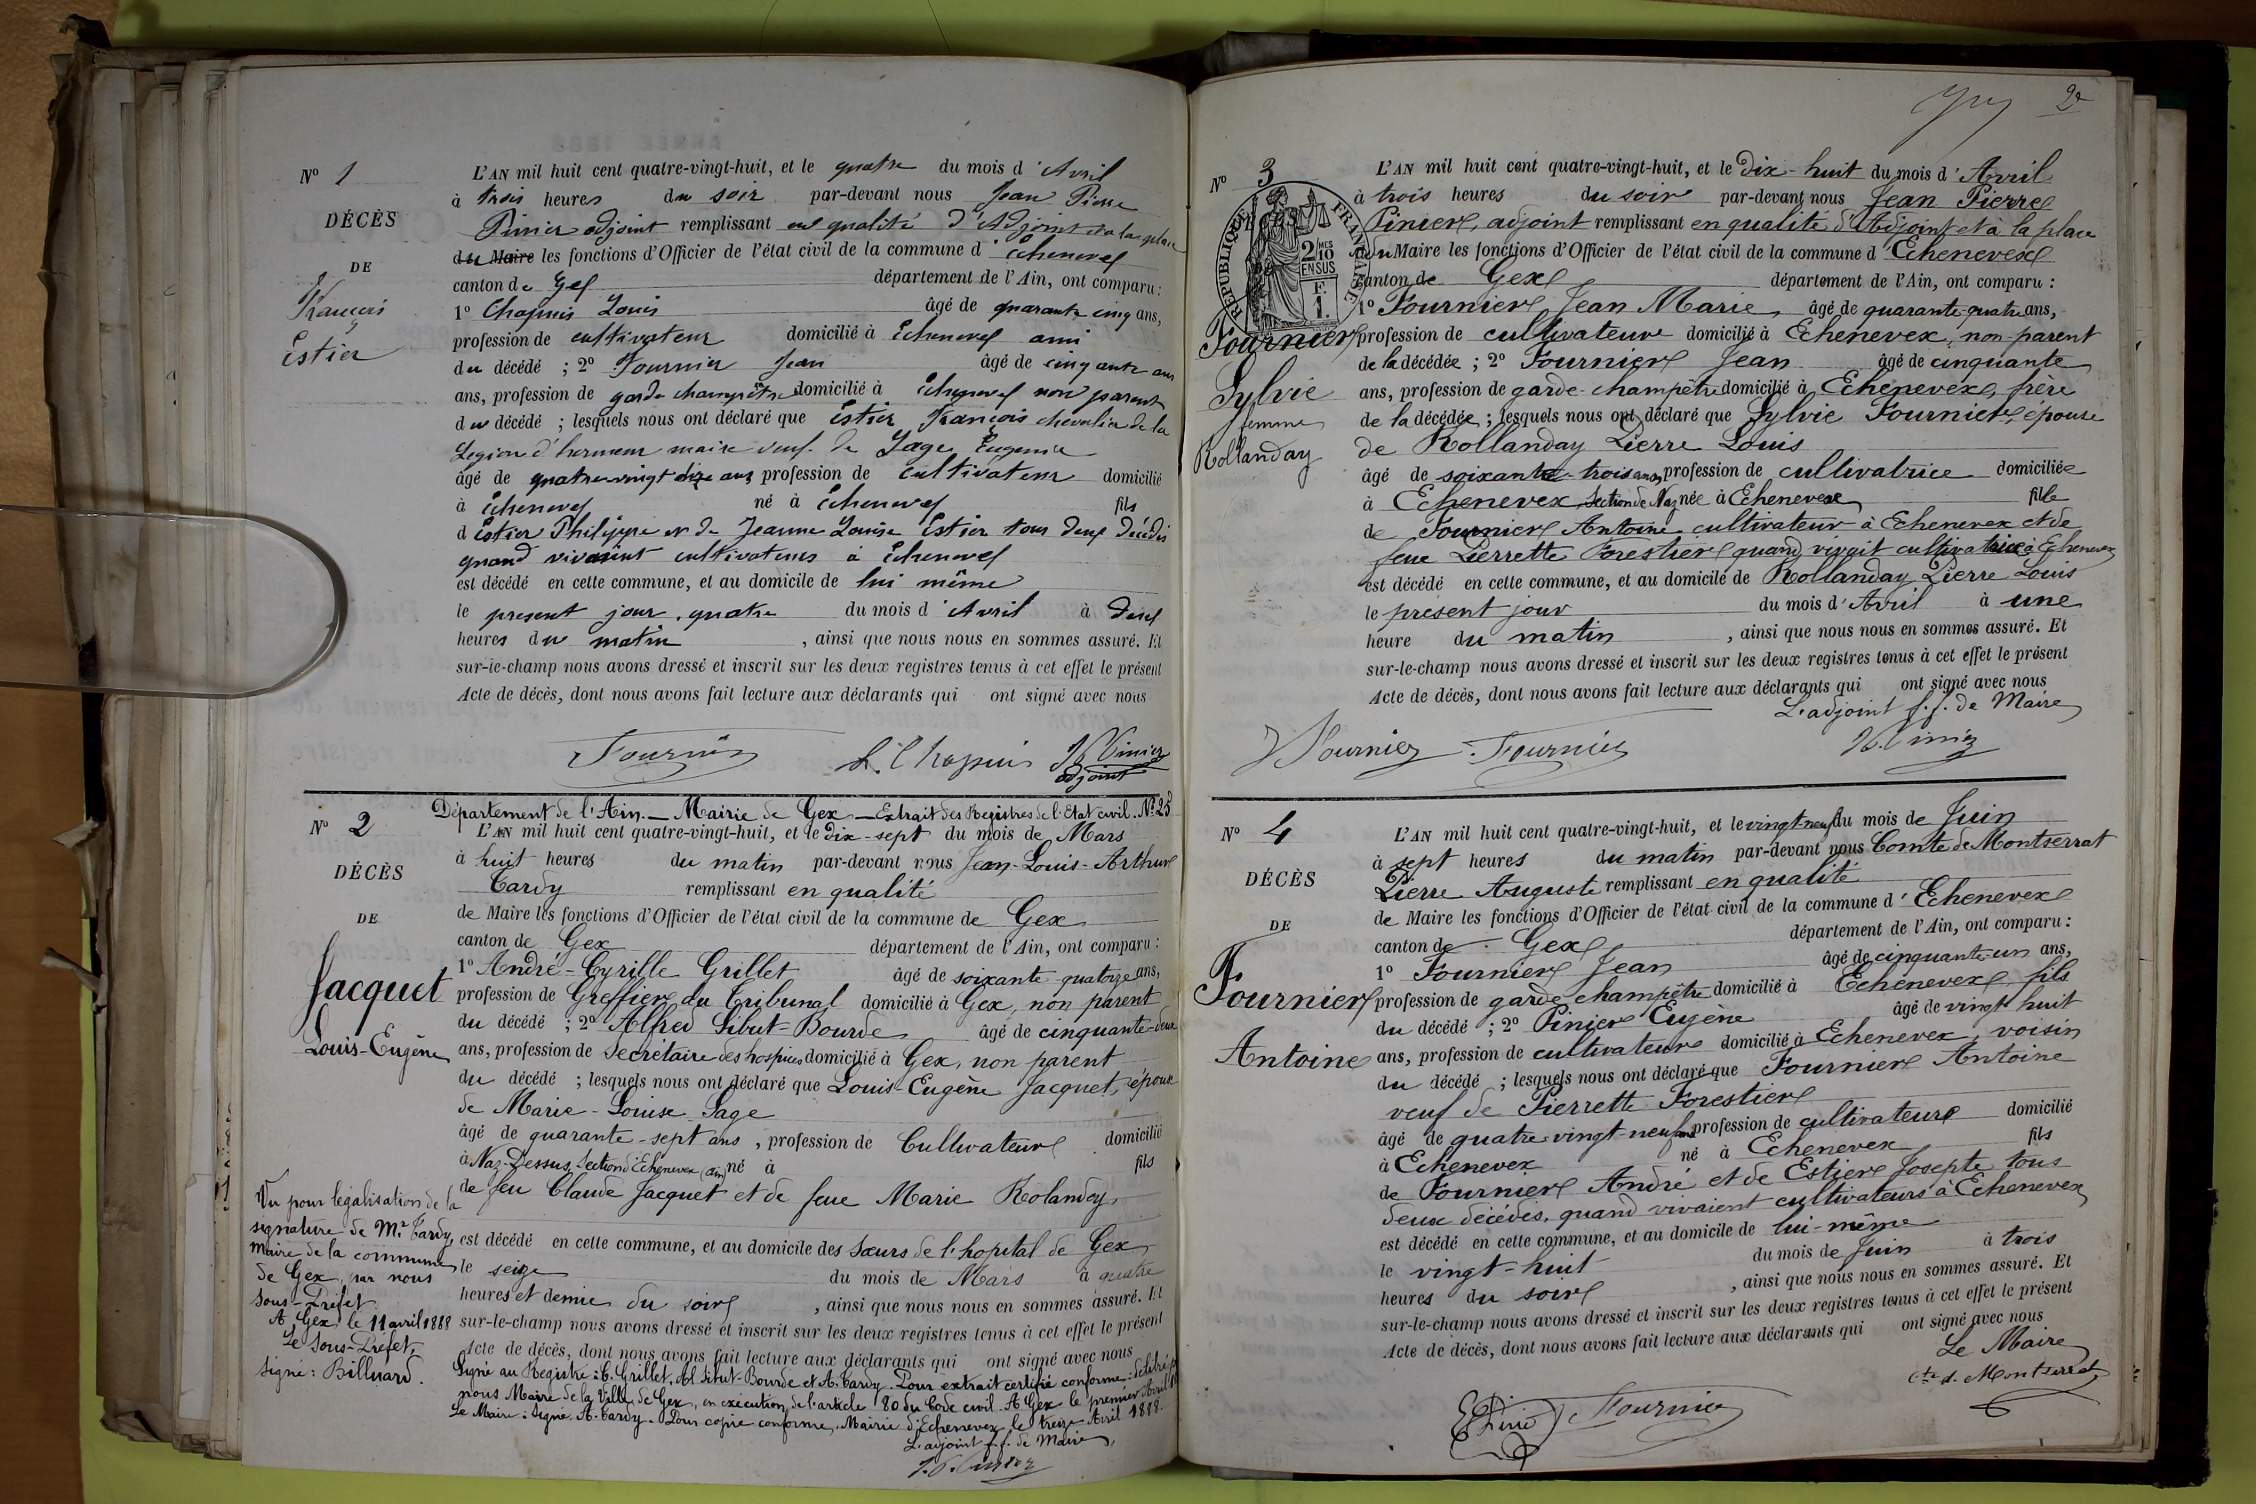 Nº 1
DÉCÈS
DE
François
Estier
L'AN mil huit cent quatre-vingt-huit, et le quatre du mois d'Avril
à trois heures du soir par-devant nous Jean Pierre
Pinier adjoint remplissant en qualité d'Adjoint et à la place
du Maire les fonctions d'Officier de l'état civil de la commune d'Echenevex
canton de Gex département de l'Ain, ont comparu :
1º Chapuis Louis âgé de quarante cinq ans,
profession de cultivateur domicilié à Echenevex ami
du décédé ; 2º Fournier Jean âgé de cinquante ans
ans, profession de garde champêtre domicilié à Echenevex non parent
du décédé ; lesquels nous ont déclaré que Estier François chevalier de la
Legion d'honneur maire veuf de Sage Eugenie
âgé de quatre-vingt dize ans profession de cultivateur domicilié
à Echenevex né à Echenevex fils
d Estier Philippe et de Jeanne Louise Estier tous deux décédés
quand vivaient cultivateurs à Echenevex
est décédé en cette commune, et au domicile de lui même
le present jour quatre du mois d'Avril à deux
heures du matin , ainsi que nous nous en sommes assuré. Et
sur-le-champ nous avons dressé et inscrit sur les deux registres tenus à cet effet le présent
Acte de décès, dont nous avons fait lecture aux déclarants qui ont signé avec nous
Fournier L. Chapuis Pinier
adjoint
Nº 2
DÉCÈS
DE
Jacquet
Louis-Eugène
Département de l'Ain. — Mairie de Gex — Extrait des Registres de l'Etat civil. Nº 25
L'AN mil huit cent quatre-vingt-huit, et le dix-sept du mois de Mars
à huit heures du matin par-devant nous Jean-Louis-Arthur
Tardy remplissant en qualité
de Maire les fonctions d'Officier de l'état civil de la commune de Gex
canton de Gex département de l'Ain, ont comparu :
1º André-Cyrille Grillet âgé de soixante quatorze ans,
profession de Greffier du Tribunal domicilié à Gex, non parent
du décédé ; 2º Alfred Sibut-Bourde âgé de cinquante-deux
ans, profession de Secrétaire des hospices domicilié à Gex, non parent
du décédé ; lesquels nous ont déclaré que Louis-Eugène Jacquet, époux
de Marie-Louise Sage
âgé de quarante-sept ans, profession de Cultivateur domicilié
à Naz-Dessus, Section d'Echenevex (Ain) né à fils
de feu Claude Jacquet et de feue Marie Rolanday,
est décédé en cette commune, et au domicile des Sœurs de l'hopital de Gex
le seize du mois de Mars à quatre
heures et demie du soir , ainsi que nous nous en sommes assuré. Et
sur-le-champ nous avons dressé et inscrit sur les deux registres tenus à cet effet le présent
Acte de décès, dont nous avons fait lecture aux déclarants qui ont signé avec nous
Signé au Registre : C. Grillet, Al Sibut-Bourde et A. Tardy. Pour extrait certifié conforme : délivré p
nous Maire de la Ville de Gex, en exécution de l'article 80 du Code civil. A Gex le premier Avril
Le Maire : Signé A. Tardy. Pour copie conforme, Mairie d'Echenevex, le treize Avril 1888.
L'adjoint f.f. de Maire,
Vu pour légalisation de la
signature de Mr. Tardy,
maire de la commune
de Gex, par nous
Sous-Préfet.
A Gex, le 11 avril 1888
Le Sous-Préfet,
Signé : Billuard.
2e
Nº 3
RÉPUBLIQUE FRANÇAISE
2/10MES
EN SUS
F.
1.
Fournier
Sylvie
femme
Rollanday
L'AN mil huit cent quatre-vingt-huit, et le dix-huit du mois d'Avril
à trois heures du soir par-devant nous Jean Pierre
Pinier, adjoint remplissant en qualité d'Adjoint et à la place
du Maire les fonctions d'Officier de l'état civil de la commune d'Echenevex
canton de Gex département de l'Ain, ont comparu :
1º Fournier Jean Marie, âgé de quarante-quatre ans,
profession de cultivateur domicilié à Echenevex, non-parent
de la décédée ; 2º Fournier Jean âgé de cinquante
ans, profession de garde-champêtre domicilié à Echenevex, frère
de la décédée ; lesquels nous ont déclaré que Sylvie Fournier, épouse
de Rollanday Pierre Louis
âgé de soixante-trois ans, profession de cultivatrice domiciliée
à Echenevex, Section de Naz née à Echenevex fille
de Fournier Antoine cultivateur à Echenevex et de
feue Pierrette Forestier quand vivait cultivatrice à Echenevex
est décédé en cette commune, et au domicile de Rollanday Pierre Louis
le present jour du mois d'Avril à une
heure du matin , ainsi que nous nous en sommes assuré. Et
sur-le-champ nous avons dressé et inscrit sur les deux registres tenus à cet effet le présent
Acte de décès, dont nous avons fait lecture aux déclarants qui ont signé avec nous
L'adjoint f.f. de Maire
Fournier Fournier Pinier
Nº 4
DÉCÈS
DE
Fournier
Antoine
L'AN mil huit cent quatre-vingt-huit, et le vingt-neuf du mois de Juin
à sept heures du matin par-devant nous Comte de Montserrat
Pierre Auguste remplissant en qualité
de Maire les fonctions d'Officier de l'état civil de la commune d'Echenevex
canton de Gex département de l'Ain, ont comparu :
1º Fournier Jean âgé de cinquante-un ans,
profession de garde champêtre domicilié à Echenevex, fils
du décédé ; 2º Pinier Eugène âgé de vingt huit
ans, profession de cultivateur domicilié à Echenevex, voisin
du décédé ; lesquels nous ont déclaré que Fournier Antoine
veuf de Pierrette Forestier
âgé de quatre vingt-neuf ans profession de cultivateur domicilié
à Echenevex né à Echenevex fils
de Fournier André et de Estier Josepte tous
deux décédés, quand vivaient cultivateurs à Echenevex
est décédé en cette commune, et au domicile de lui-même
le vingt-huit du mois de Juin à trois
heures du soir , ainsi que nous nous en sommes assuré. Et
sur-le-champ nous avons dressé et inscrit sur les deux registres tenus à cet effet le présent
Acte de décès, dont nous avons fait lecture aux déclarants qui ont signé avec nous
Le Maire
Cte de Montserrat
E. Pinier Fournier